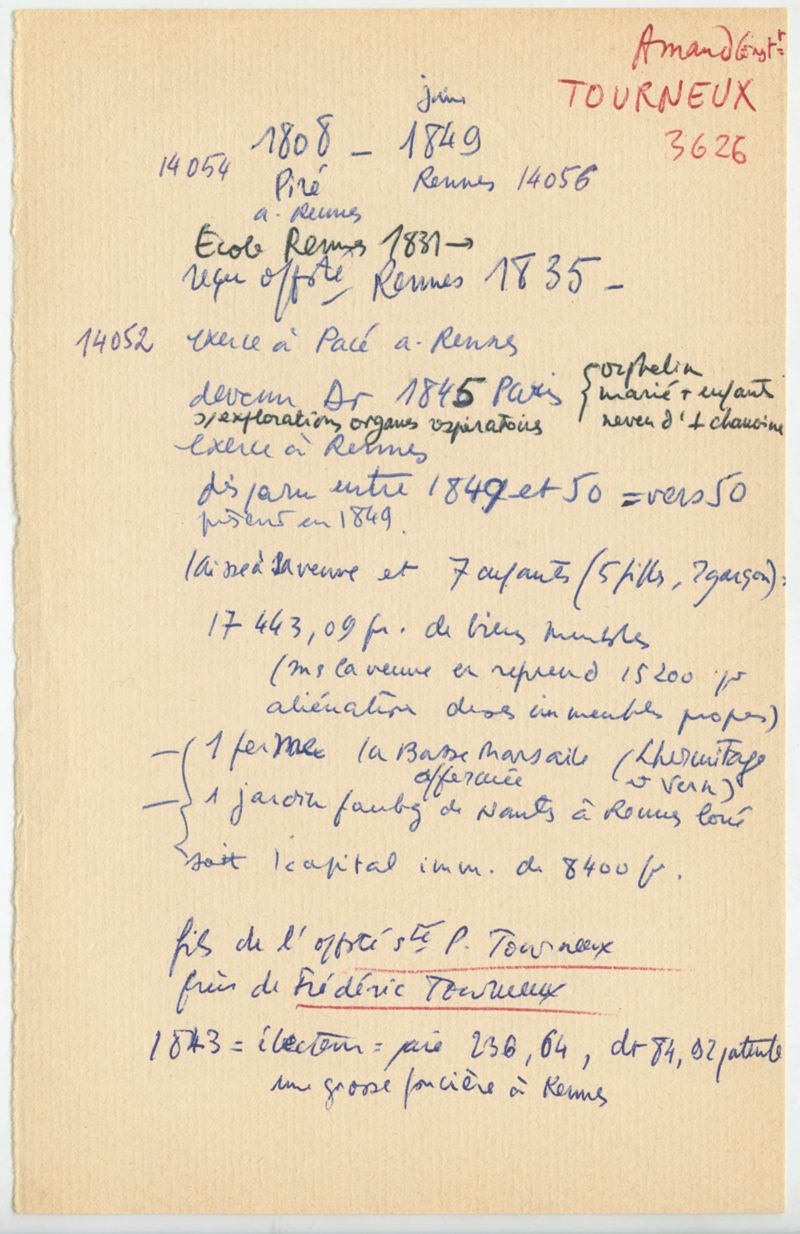 Amand Const^t
TOURNEUX
3626
juin
1808 – 1849
14054 Piré Rennes 14056
a. Rennes
Ecole Rennes 1831 →
reçu off sté Rennes 1835 –
14052 exerce à Pacé a. Rennes
devenu Dr 1845 Paris { orphelin
marié + enfants
neveu d'1 chanoine
s/explorations organes respiratoires
exerce à Rennes
disparu entre 1849 et 50 = vers 50
présent en 1849.
laisse à sa veuve et 7 enfants (5 filles, 2 garçons) =
17 443,09 fr. de biens meubles
(ms la veuve en reprend 15200 pr
aliénation de ses immeubles propres)
– 1 ferme la Basse Marsaile (Lhermitage
affermée & Vern)
– 1 jardin faubg de Nantes à Rennes loué
soit 1 capital imm. de 8400 fr.
fils de l'off sté P. Tourneux
frère de Frédéric Tourneux
1843 = électeur = paie 236,64, dt 84,92 patente
une grosse foncière à Rennes